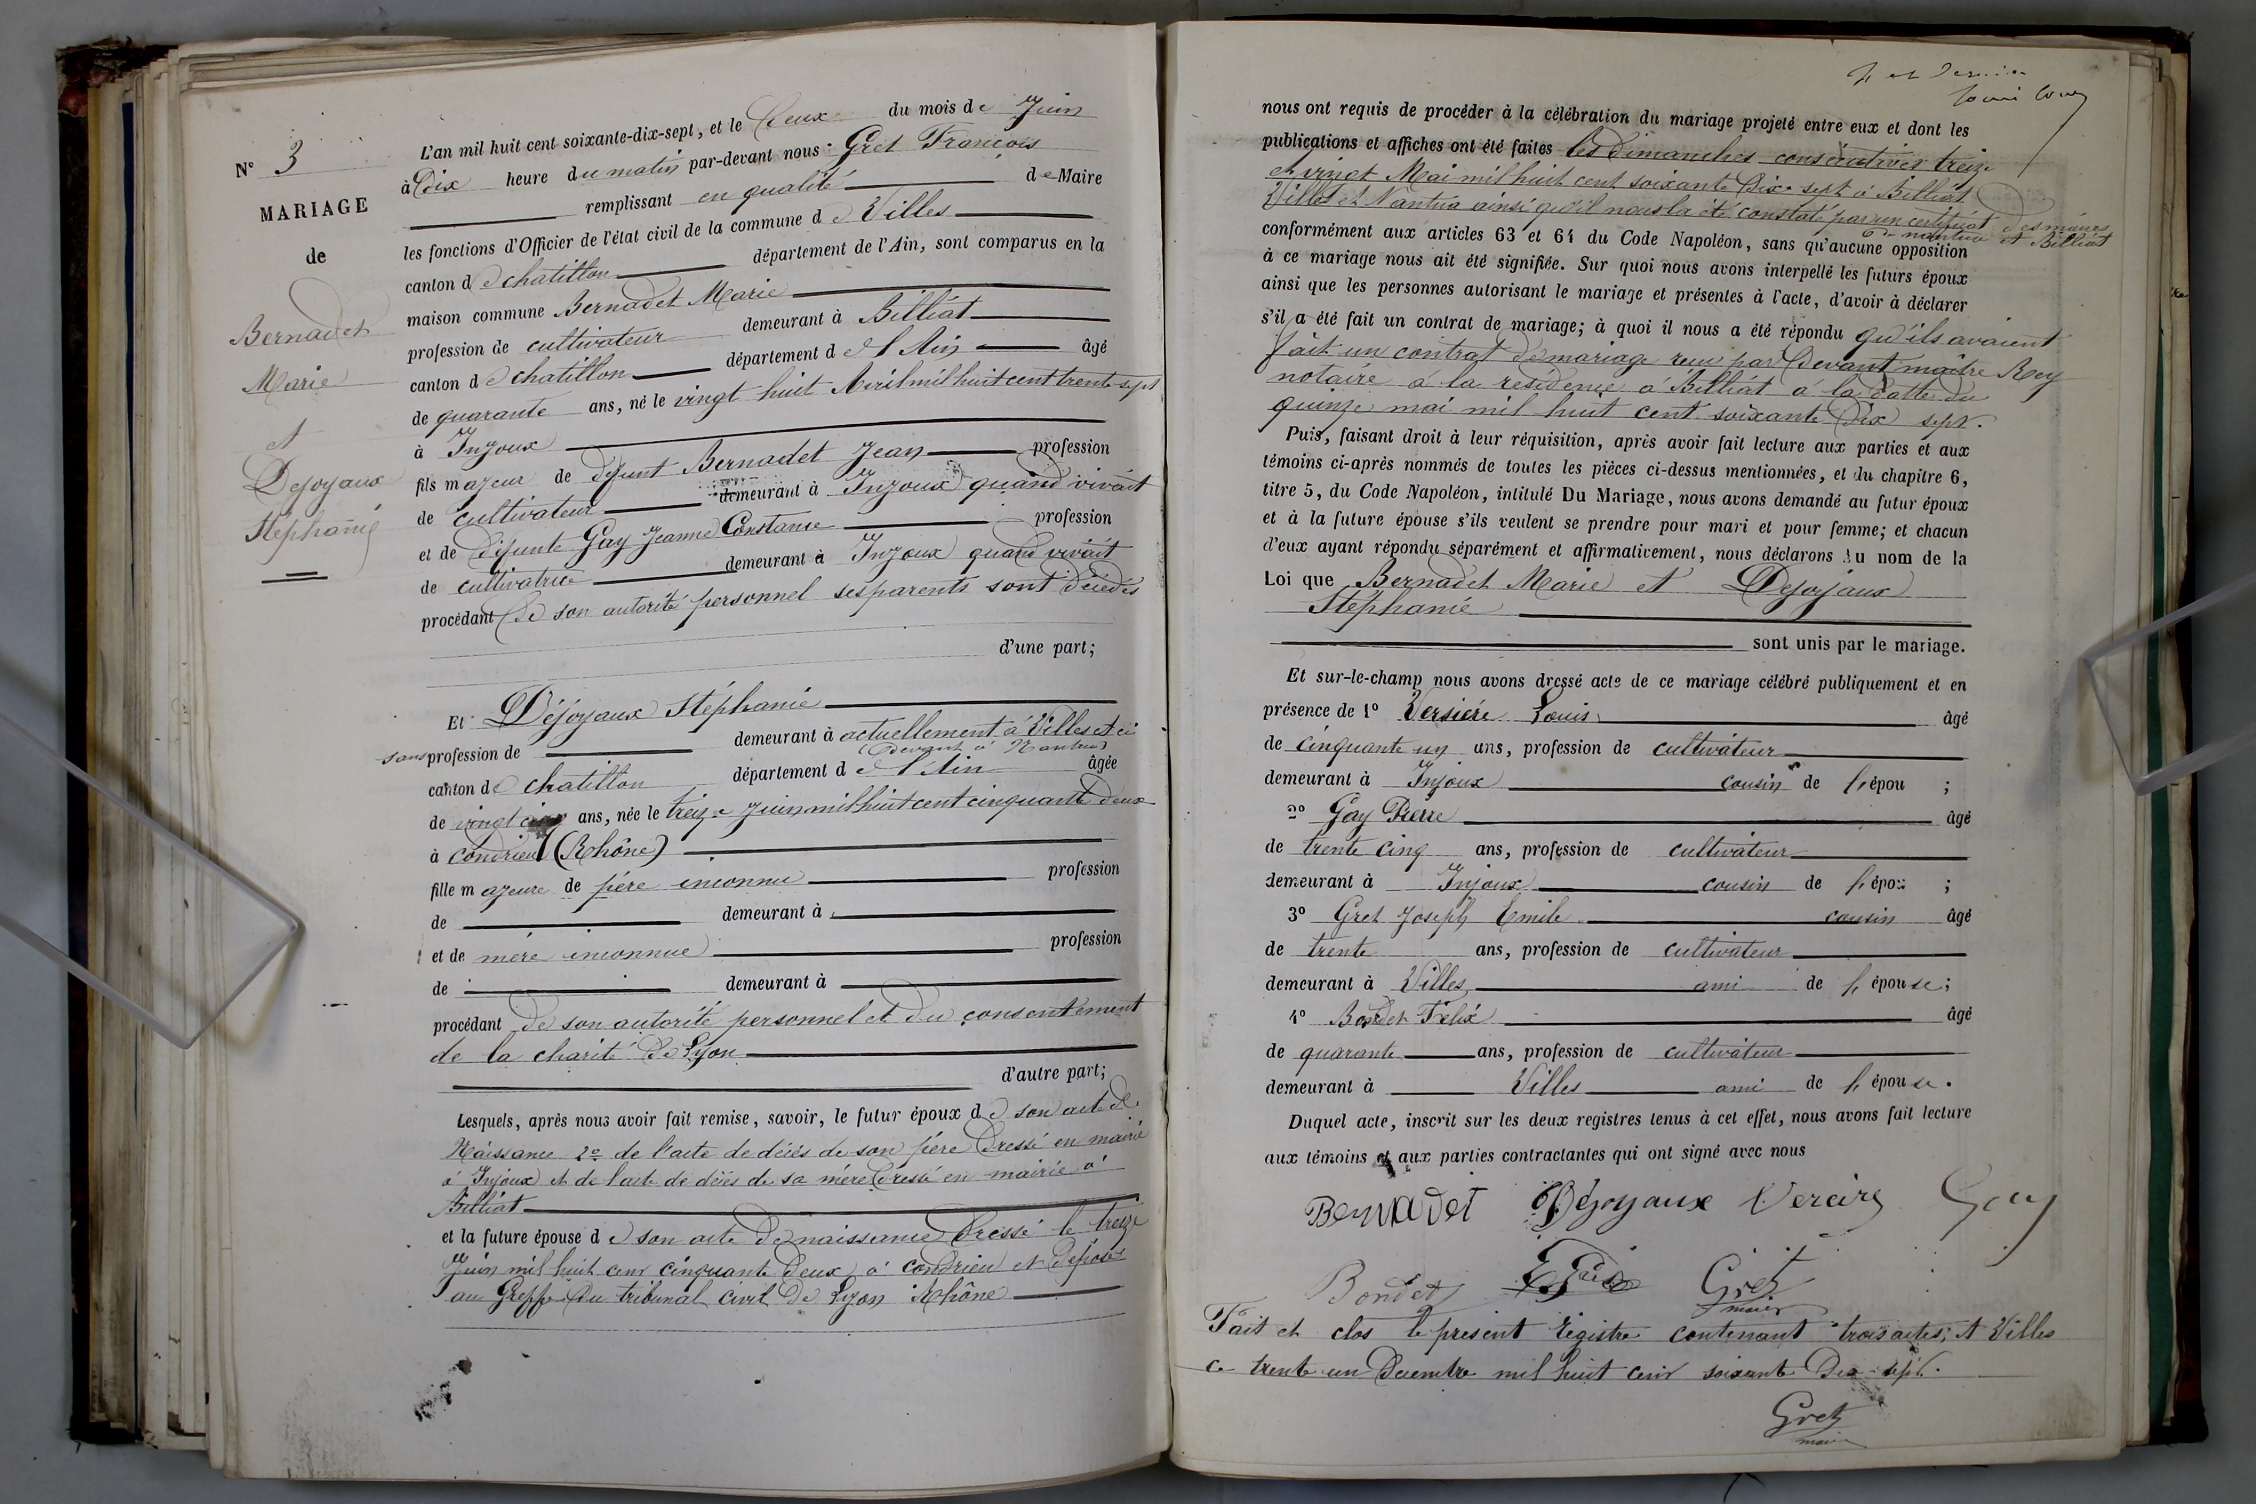 N° 3
MARIAGE
de
Bernadet
Marie
et
Dejoyaux
Stéphanie
L'an mil huit cent soixante-dix-sept, et le Deux du mois de Juin
à Dix heure du matin par-devant nous Gret François
remplissant en qualité de Maire
les fonctions d'Officier de l'état civil de la commune de Villes
canton de chatillon département de l'Ain, sont comparus en la
maison commune Bernadet Marie
profession de cultivateur demeurant à Billiat
canton de chatillon département de l'Ain âgé
de quarante ans, né le vingt huit Avril mil huit cent trente sept
à Injoux
fils majeur de défunt Bernadet Jean profession
de cultivateur demeurant à Injoux quand vivait
et de défunte Gay Jeanne Constance profession
de cultivatrice demeurant à Injoux quand vivait
procédant De son autorité personnel ses parents sont décédés
d'une part;
Et Déjoyaux Stéphanie
sans profession de demeurant à actuellement à Villes et ci
(Devant à Nantua)
canton de chatillon département de l'Ain âgée
de vingt ans, née le treize Juin mil huit cent cinquante deux
à Condrieu (Rhône)
fille majeure de père inconnu profession
de demeurant à
et de mère inconnue profession
de demeurant à
procédant de son autorité personnel et du consentement
de la charité de Lyon
d'autre part;
Lesquels, après nous avoir fait remise, savoir, le futur époux de son acte de
Naissance 2° de l'acte de décés de son père Dressé en mairie
à Injoux et de l'acte de décés de sa mère Dressé en mairie à
Billiat
et la future épouse de son acte De naissance Dressé le treize
Juin mil huit cent cinquante deux à Condrieu et déposé
au Greffe Du tribunal civil De Lyon Rhône
nous ont requis de procéder à la célébration du mariage projeté entre eux et dont les
publications et affiches ont été faites les dimanches consécutives treize
et vingt Mai mil huit cent soixante Dix-sept à Billiat
Villes et Nantua ainsi qu'il nous la été constaté par un certificat des maires
de nantua et Billiat
conformément aux articles 63 et 64 du Code Napoléon, sans qu'aucune opposition
à ce mariage nous ait été signifiée. Sur quoi nous avons interpellé les futurs époux
ainsi que les personnes autorisant le mariage et présentes à l'acte, d'avoir à déclarer
s'il a été fait un contrat de mariage; à quoi il nous a été répondu qu'ils avaient
fait un contrat de mariage reçu par Devant maître Rey
notaire à la residence à Billiat à la datte du
quinze mai mil huit cent soixante Dix sept.
Puis, faisant droit à leur réquisition, après avoir fait lecture aux parties et aux
témoins ci-après nommés de toutes les pièces ci-dessus mentionnées, et du chapitre 6,
titre 5, du Code Napoléon, intitulé Du Mariage, nous avons demandé au futur époux
et à la future épouse s'ils veulent se prendre pour mari et pour femme; et chacun
d'eux ayant répondu séparément et affirmativement, nous déclarons au nom de la
Loi que Bernadet Marie et Dejoyaux
Stéphanie
sont unis par le mariage.
Et sur-le-champ nous avons dressé acte de ce mariage célébré publiquement et en
présence de 1° Versière Louis âgé
de cinquante un ans, profession de cultivateur
demeurant à Injoux cousin de l'épou ;
2° Gay Pierre âgé
de trente cinq ans, profession de cultivateur
demeurant à Injoux cousin de l'épou ;
3° Gret Joseph Emile cousin âgé
de trente ans, profession de cultivateur
demeurant à Villes ami de l'épouse;
4° Bondet Félix âgé
de quarante ans, profession de cultivateur
demeurant à Villes ami de l'épouse.
Duquel acte, inscrit sur les deux registres tenus à cet effet, nous avons fait lecture
aux témoins et aux parties contractantes qui ont signé avec nous
Bernadet Déjoyaux Gay
Bondet Gret
maire
Fait et clos le présent registre contenant trois actes; A Villes
ce trente un Decembre mil huit cent soixante Dix sept.
Gret
maire